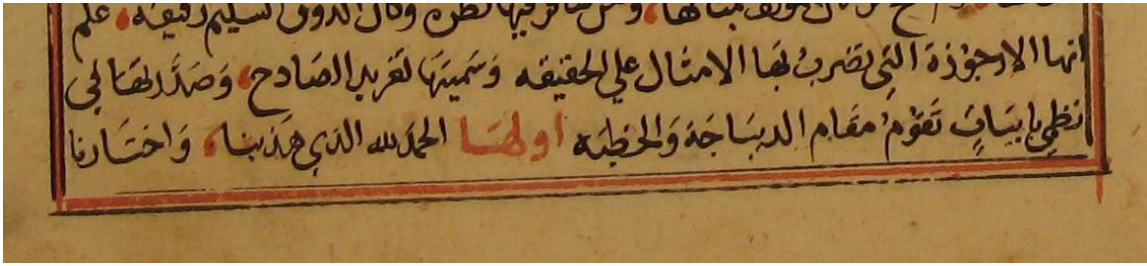 نظره وكان الذوق السليم رفيقه، علم
انها الارجوزة التي تضرب بها الامثال علي الحقيقه وسميتها تغريد الصادح، وصدرتها في
نظمي بابيات تقوم مقام الديباجة والخطبه اولها الحمد لله الذي هذبنا، واختارنا